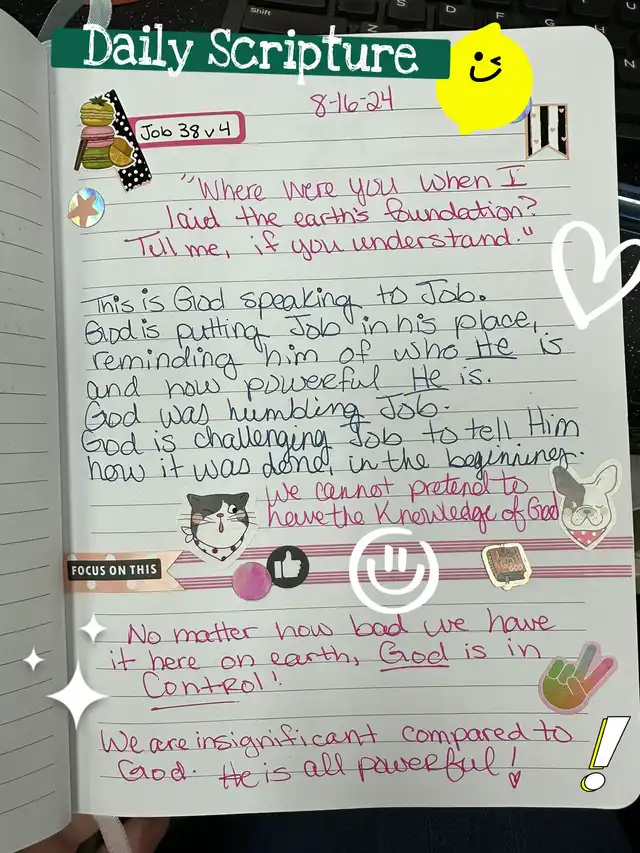 Shift
Daily Scripture
8-16-24
Job 38 v 4
"Where were you when I
laid the earth's foundation?
Tell me, if you understand."
This is God speaking to Job.
God is putting Job in his place,
reminding him of who He is
and how powerful He is.
God was humbling Job.
God is challenging Job to tell Him
how it was done, in the beginning.
We cannot pretend to
have the Knowledge of God
FOCUS ON THIS
No matter how bad we have
it here on earth, God is in
Control!
We are insignificant compared to
God. He is all powerful!